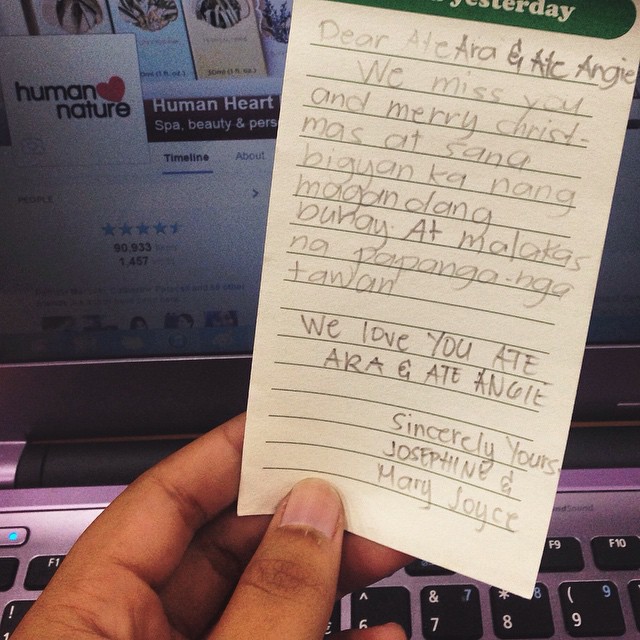 yesterday
Dear Ate Ara & Ate Angie
We miss you
and merry christ-
mas at sana
bigyan ka nang
magandang
buhay. At malakas
na papanga-nga
tawan
We love YOU ATE
ARA & ATE ANGIE
Sincerely Yours,
JOSEPHINE &
Mary Joyce
human
nature
Human Heart
Spa, beauty & pers
Timeline
About
PEOPLE
90,933 likes
1,457
F1
F9
F10
^
6
&
7
7
*
8
8
(
9
9